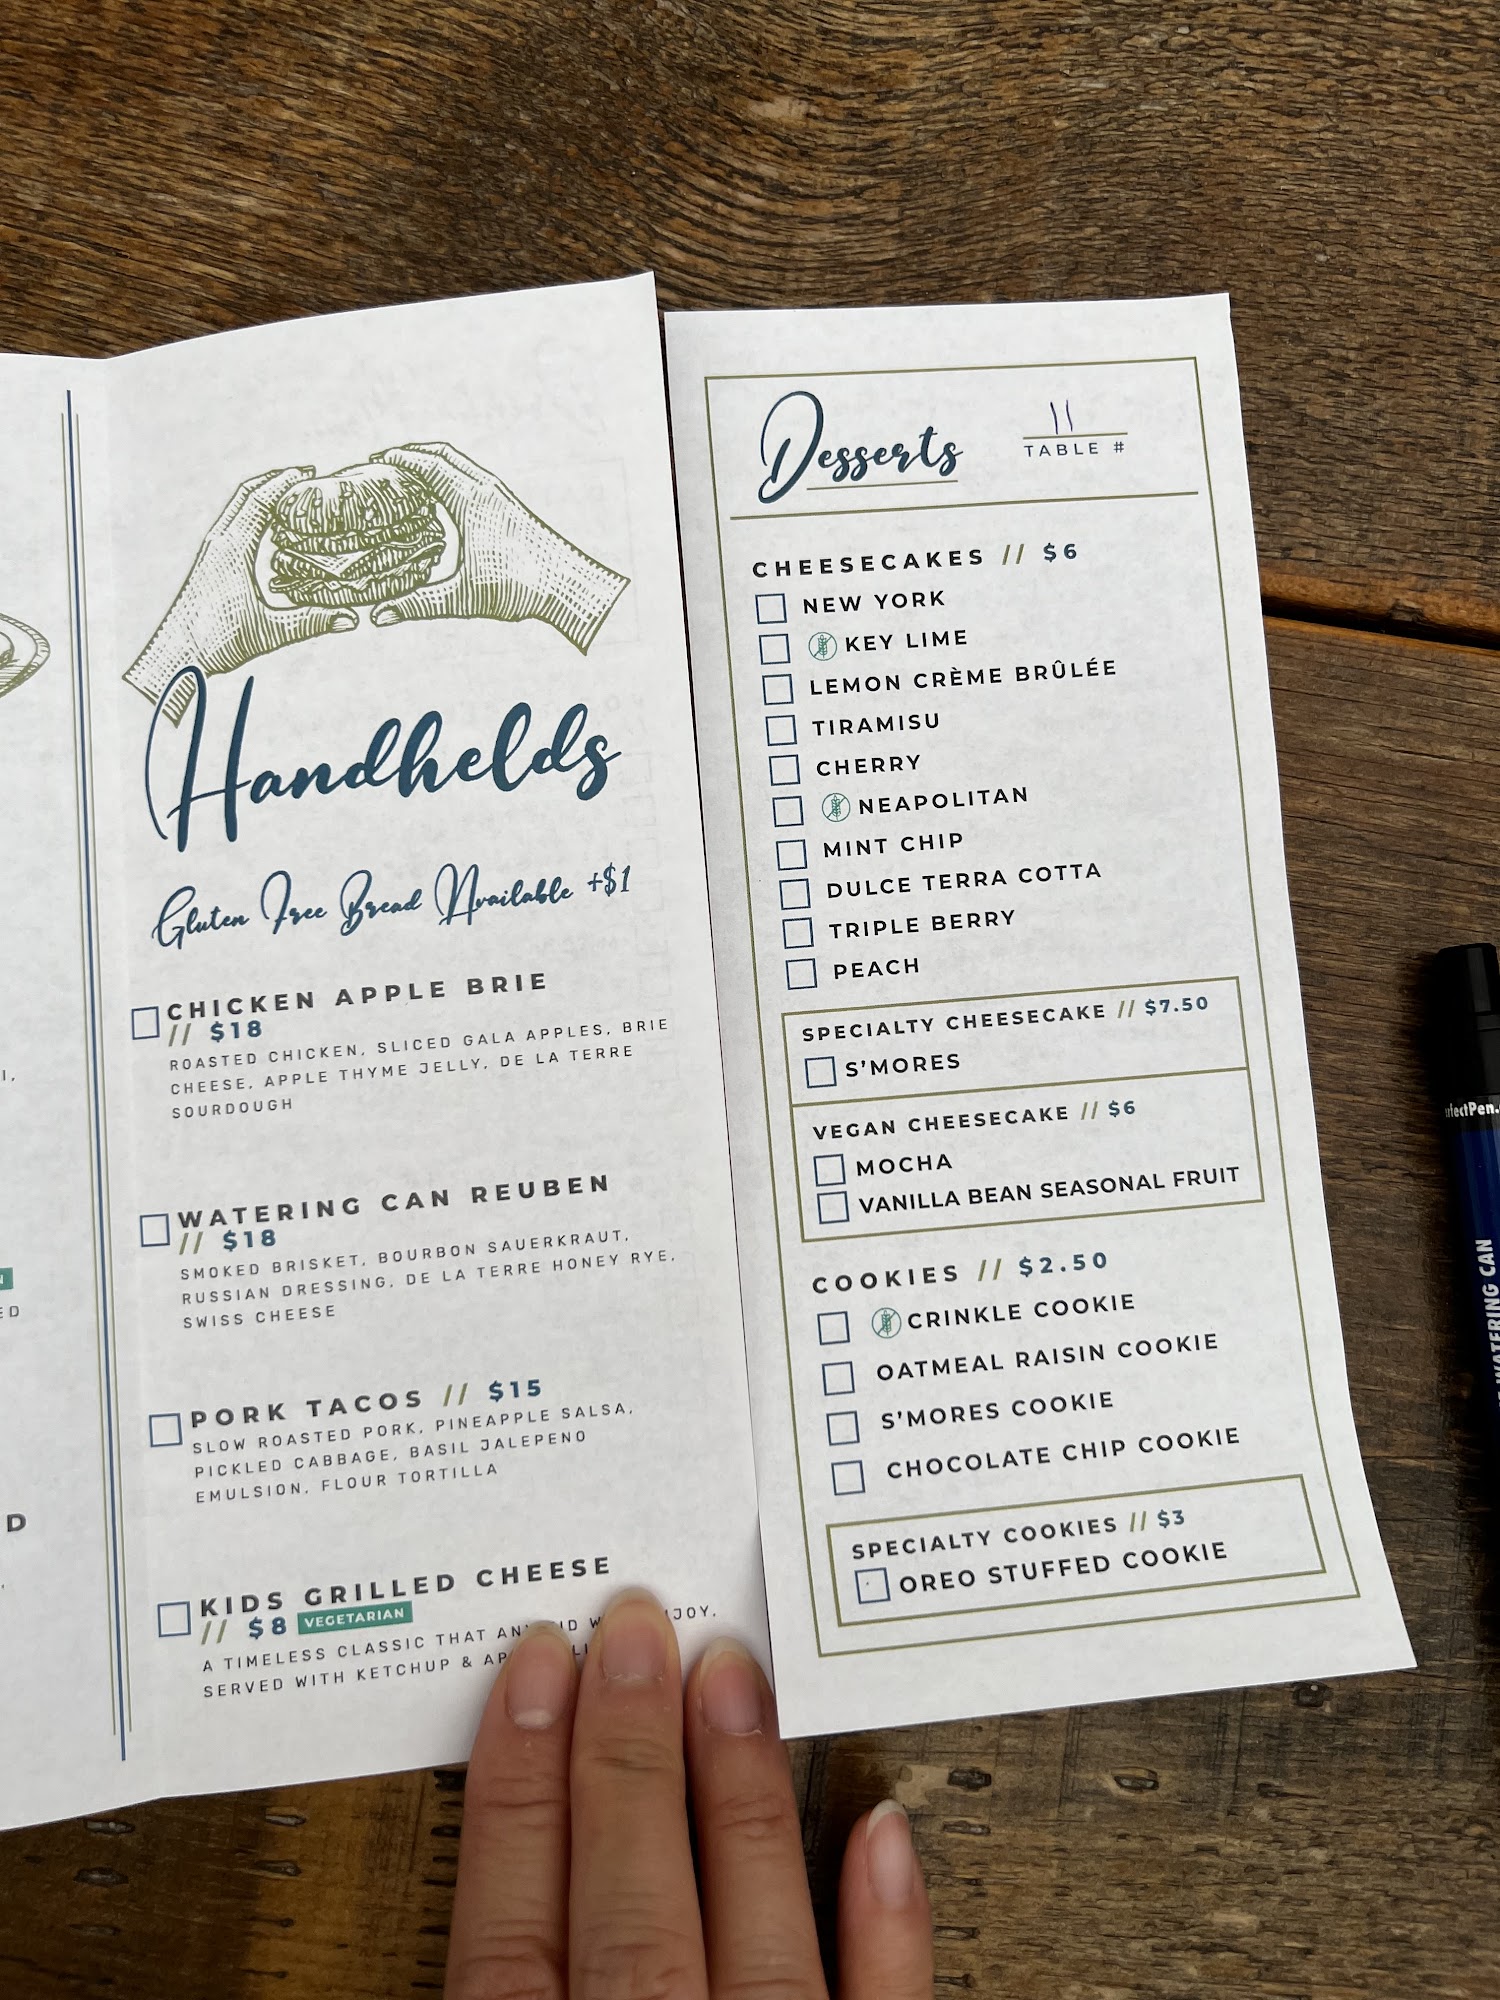 Handhelds
Gluten Free Bread Available +$1
CHICKEN APPLE BRIE
// $18
ROASTED CHICKEN, SLICED GALA APPLES, BRIE
CHEESE, APPLE THYME JELLY, DE LA TERRE
SOURDOUGH
WATERING CAN REUBEN
// $18
SMOKED BRISKET, BOURBON SAUERKRAUT,
RUSSIAN DRESSING, DE LA TERRE HONEY RYE,
SWISS CHEESE
PORK TACOS // $15
SLOW ROASTED PORK, PINEAPPLE SALSA,
PICKLED CABBAGE, BASIL JALEPENO
EMULSION, FLOUR TORTILLA
KIDS GRILLED CHEESE
// $8 VEGETARIAN
A TIMELESS CLASSIC THAT
SERVED WITH KETCHUP &
Desserts
11
TABLE #
CHEESECAKES // $6
NEW YORK
KEY LIME
LEMON CRÈME BRÛLÉE
TIRAMISU
CHERRY
NEAPOLITAN
MINT CHIP
DULCE TERRA COTTA
TRIPLE BERRY
PEACH
SPECIALTY CHEESECAKE // $7.50
S'MORES
VEGAN CHEESECAKE // $6
MOCHA
VANILLA BEAN SEASONAL FRUIT
COOKIES // $2.50
CRINKLE COOKIE
OATMEAL RAISIN COOKIE
S'MORES COOKIE
CHOCOLATE CHIP COOKIE
SPECIALTY COOKIES // $3
OREO STUFFED COOKIE
WATERING CAN